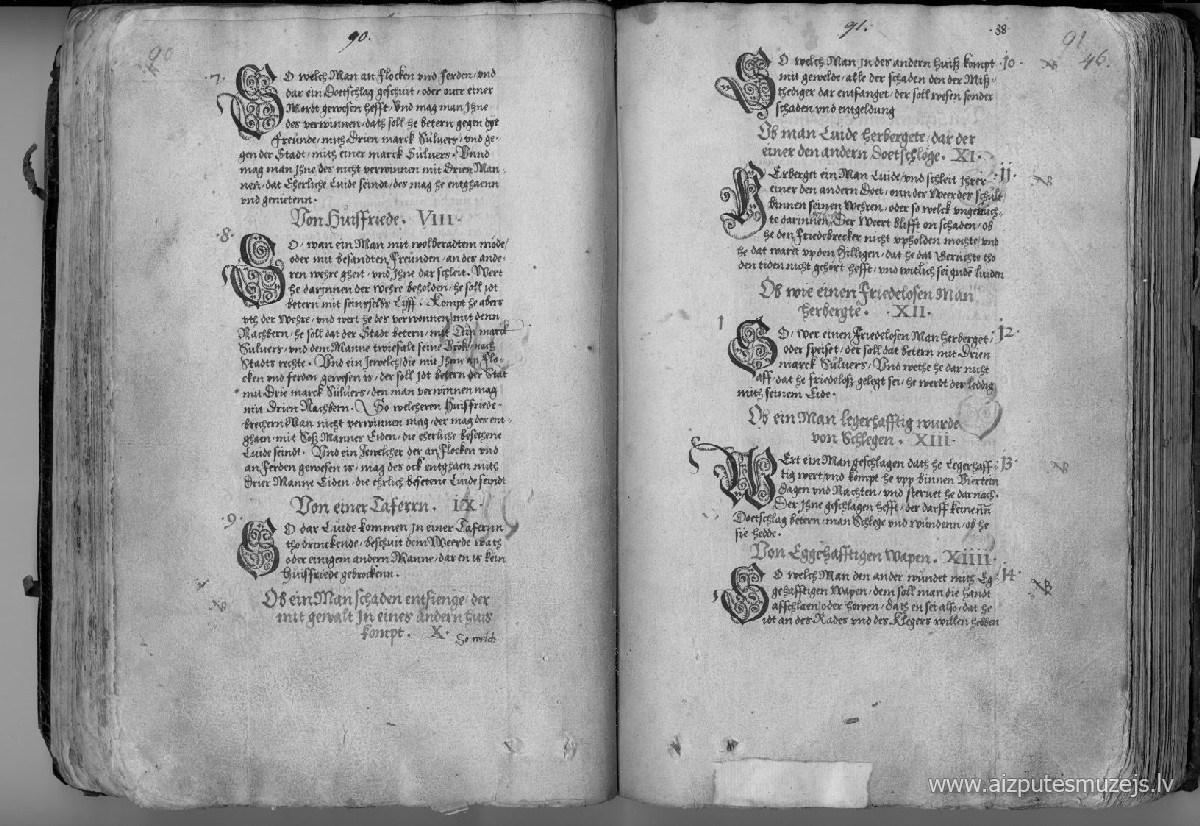 90.
7.
SO welch Man an Flocken vnd Ferden, vnd
dar ein Doetschlag geschuit, oder outr einer
Mordt gewesen hefft, Vnd mag man Jhne
des verwinnen, dath soll he betern gegen
Freunde, mith Drien marck Suluers, vnd ge-
gen der Stadt, mith einer marck Suluers. Vnnd
mag man Jhne des nicht verwinnen mit Drien Man-
nen, dat Eherliche Luide seindt, des mag he entghaenn
vnd genietenn.
Von Huisfriede. VIII.
8.
SO, wan ein Man mit wolberadtem mode,
oder mit besandten Freunden, an des ande-
ren wehre gheit, vnd Jhne dar schleit. Wert
he darjnnen der wehre beholden, he soll jdt
betern mit seines selbs Lyff. Kompt he abers
vth der Wehre, vnd wert he des verwonnen mit denn
Nachbern, he soll dat der Stadt betern, mit Drin marck
Suluers, vnd dem Manne twiefalt seine Bröke, nach
Stadts rechte. Vnd ein Jewelch, die mit Jhme an Flo-
cken vnd ferden gewesen is, der soll jdt betern der Stat
mit Drie marck Suluers, den man verwinnen mag
mit Drien Nachbern. So welcheren Huisfriede-
brechern Man nicht verwinnen mag, der mag des ent-
ghaen mit Soß Manner Eiden, die eherliche besethene
Luide seindt. Vnd ein Jewelcher der an Flocken vnd
an Ferden gewesen is, mag des ock entghaen mith
Drier Manne Eiden, die ehrlich besetene Luide seindt
Von einer Taferrn. IX.
9.
SO dar Luide kommen jn einer Tafernn
tho drinckende, beschuit dem Weerde wath
oder einigem andern Manne, dar en is kein
Huisfriede gebrockenn.
Ob ein Man schaden entfienge, der
mit gewalt Jn eines andern huis
kompt. X.
So welch
91.
38
91
46.
10.
SO welch Man jn des andern huiß kompt
mit gewelde, alle der schaden den der Miß-
thediger dar entfanget, der soll wesen sonder
schaden vnd entgeldung
Ob man Luide herbergete, dar der
einer den andern Doetschloge. XI.
11.
HErberget ein Man Luide, vnd schleit Jhrer
einer den andern Doet, onn der Weerdes schult
binnen seinen Wehren, oder so welck vngeluch-
te darinnen, Der Weert blifft on schaden, ob
he den Friedebrecker nicht vpholden mochte, vnd
he dat waret vp den Hilligen, dat he dat Geruchte tho
den tiden nicht gehort hefft, vnd witlich sei gude luiden
Ob wie einen Friedelosen Man
herbergte. XII.
12.
SO, wer einen Friedelosen Man herberget,
oder speiset, der soll dat betern mit Drien
marck Suluers, Vnd wethe he dar nicht
aff, dat he friedeloß gelegt sei, he werdt des leddig
mith seinem Eide.
Ob ein Man legerhafftig wurde
von Schlegen. XIII.
13.
WErt ein Man geschlagen dath he Legerhaff-
tig wert, vnd kompt he vpp binnen Viertein
Dagen vnd Nachten, vnd steruet he darnach.
Der Jhne geschlagen hefft, der darff keinenn
Doetschlag betern, man Schlege vnd wundenn, ob he
sie hedde.
Von Eggehafftigen Wapen. XIIII.
14.
SO welch Man den ander wundet mith Eg-
gehafftigen Wapen, dem soll man die handt
affschlaen, oder howen, dath en sei also, dat he
idt an des Rades vnd des Klegers willen hebben
www.aizputesmuzejs.lv